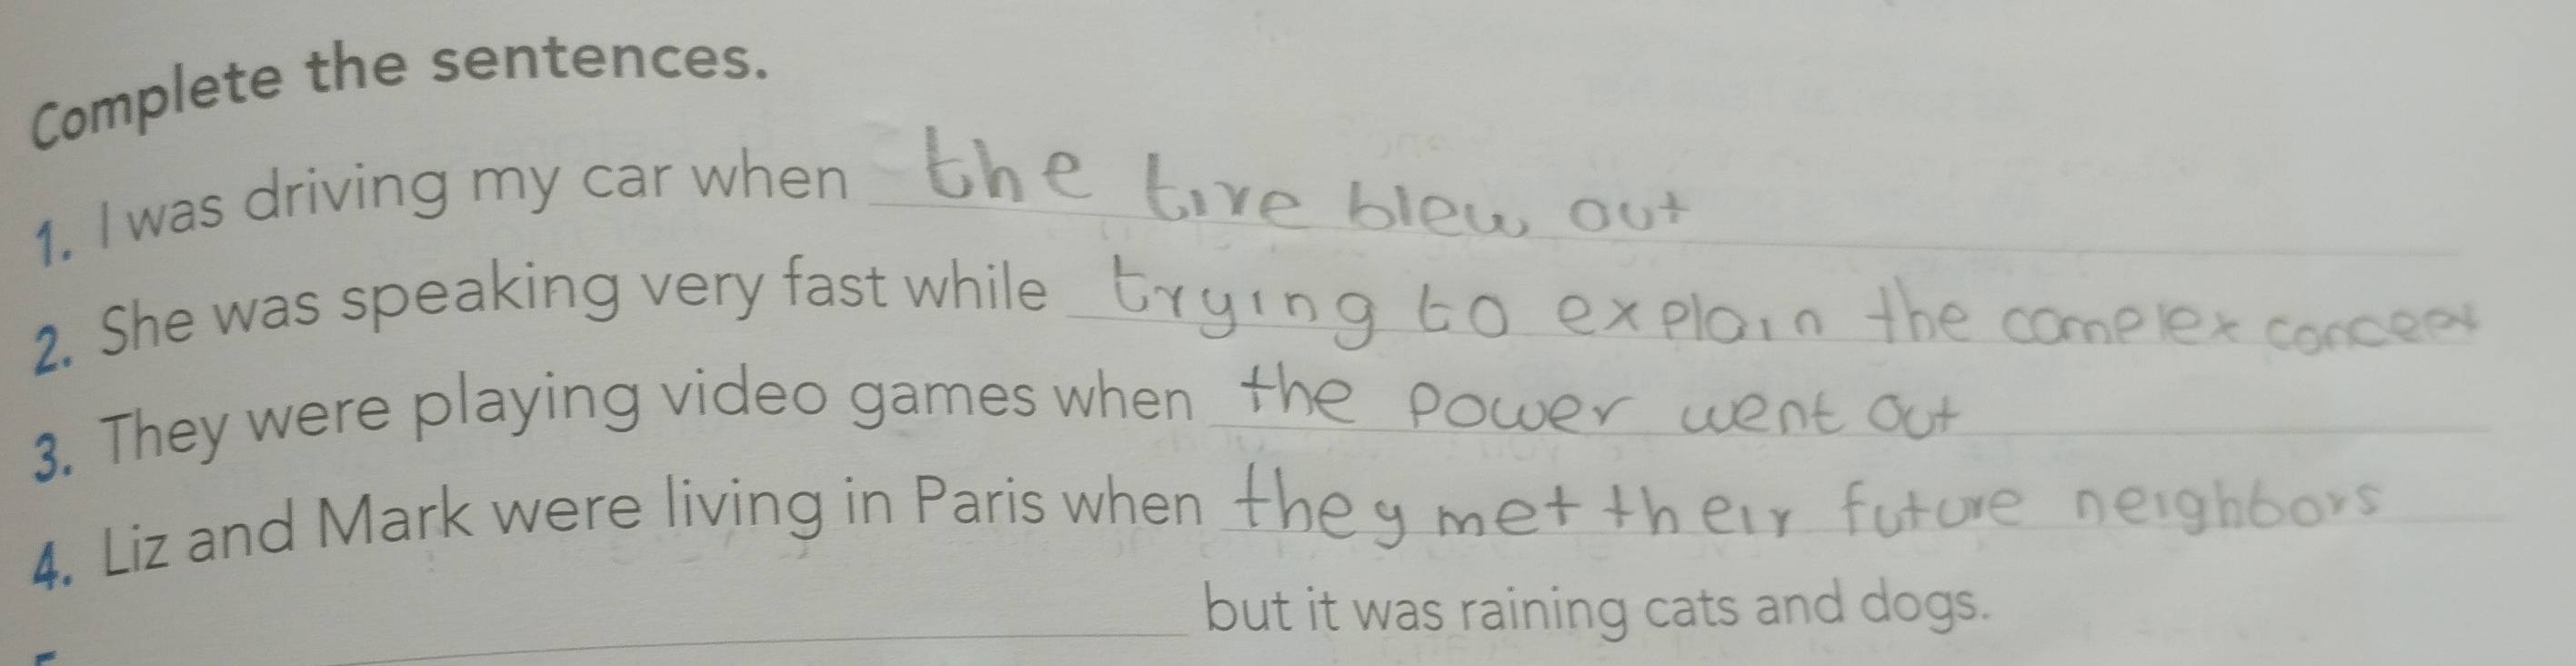 Complete the sentences.
1. I was driving my car when the tire blew out
2. She was speaking very fast while trying to explain the complex concept
3. They were playing video games when the power went out
4. Liz and Mark were living in Paris when they met their future neighbors
but it was raining cats and dogs.